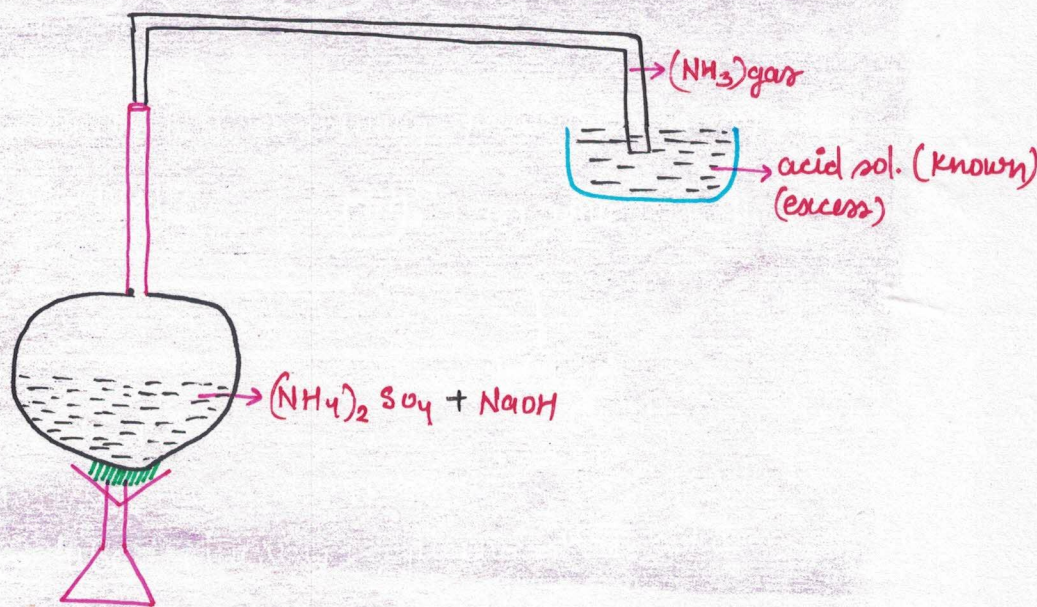 (NH₃)gas
acid sol. (Known)
(excess)
(NH₄)₂ SO₄ + NaOH